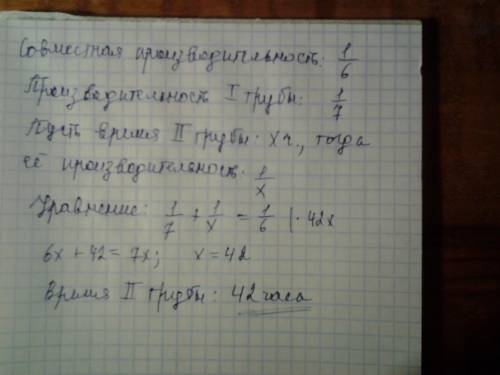 Совместная производительность: 1/6
Производительность I трубы: 1/7
Пусть время II трубы: x ч., тогда
её производительность: 1/x
Уравнение: 1/7 + 1/x = 1/6 | · 42x
6x + 42 = 7x; x = 42
Время II трубы: 42 часа